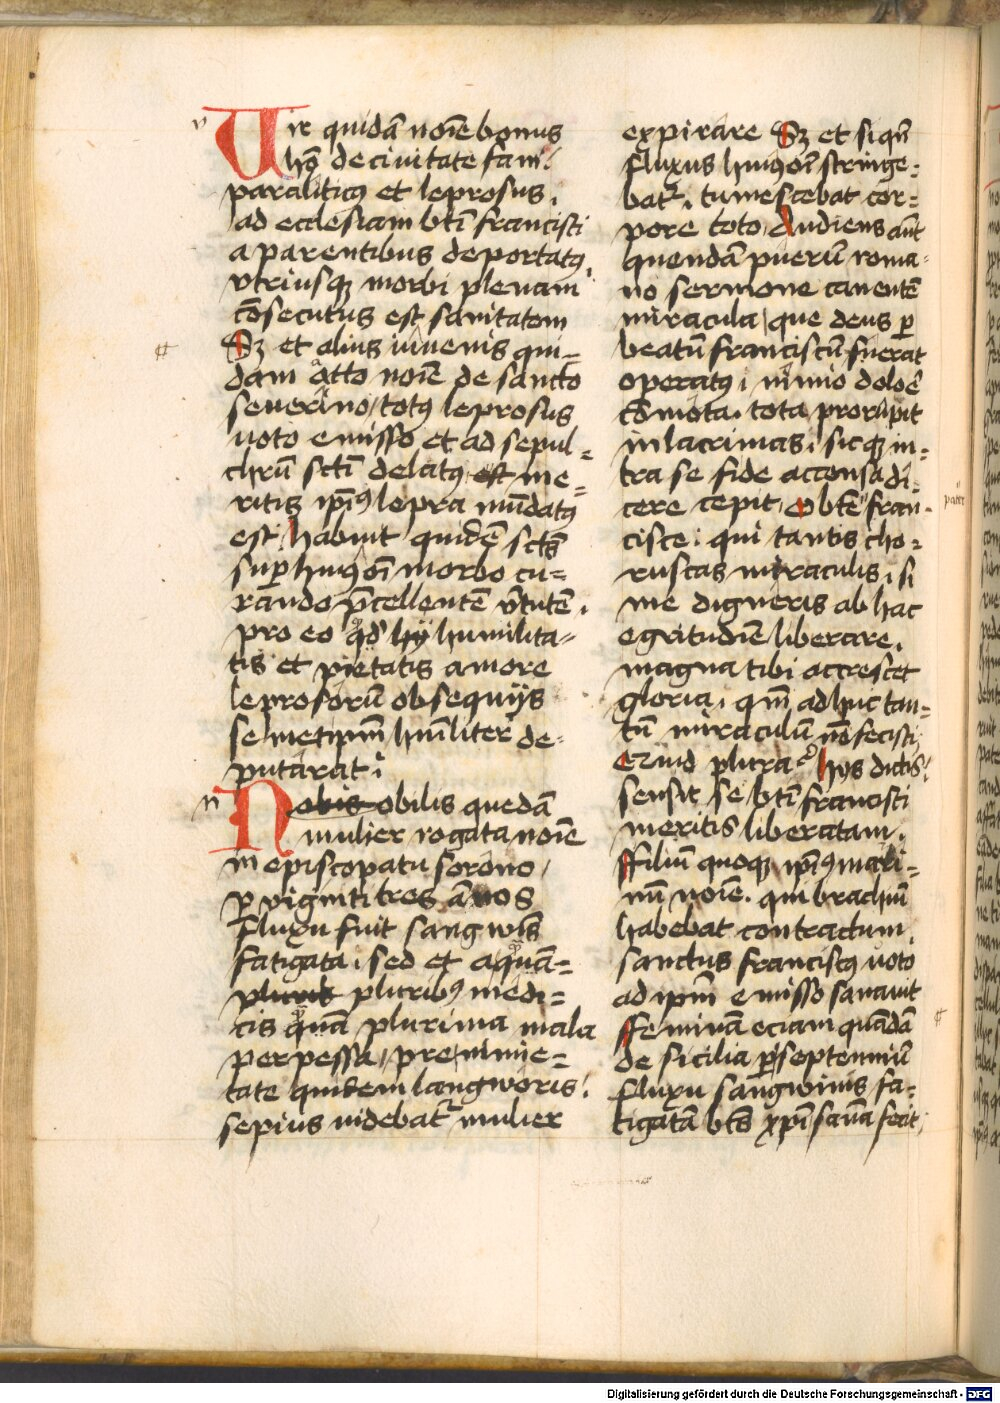 v
Vir quidā noīe bonus
hō de ciuitate fam̄.
paraliticꝰ et leprosus.
ad ecclesiam btī francisci
a parentibus deportatꝰ.
vtriusqꝫ morbi plenam
cōsecutus est sanitatem
Sꝫ et alius iuuenis qui=
dam otto noīe de sancto
seuerino totꝰ leprosus
uoto emisso et ad sepul=
chrū sctī delatꝰ est me=
ritis ip̄iꝰ lepra mūdatꝰ
est habuit quidē sctꝰ
suꝑ huiꝰ oī morbo cu=
rando p̄cellentē v̄tutē.
pro eo qd hÿ humilita=
tis et pietatis amore
leprosorū obsequijs
semetip̄m hūiliter de=
putarat.
n
Nobis obilis quedā
mulier rogata noīe
in episcopatu sorono
ꝑ viginti tres annos
fluxu fuit sangwīs
fatigata. sed et a quā=
pluribꝰ medi=
cis quā plurima mala
perpessa, pre nimie=
tate quidem langworis.
sepius uidebatʳ mulier
expirare Sꝫ et si qn̄
fluxus huiꝰ oī stringe=
batʳ. tumescebat cor=
pore toto. Audiens aūt
quendā puerū roma=
no sermone canentē
miracula, que deus ꝑ
beatū franciscū fuerat
operatꝰ, nimio doloē
cōmota. tota prorupit
in lacrimas, sicqꝫ in=
tra se fide accensa di=
cere cepit. O btē fran=
cisce. qui tantis cho=
ruscas miraculis, si
me digneris ab hac
egritudīe liberare.
magna tibi accrescet
gloria. qm̄ adhuc tan=
tū miraculū nō fecisti
Quid plura? hijs dictis.
sensit se btī francisci
meritis liberatam.
ffiliū quoqꝫ ip̄iꝰ mari=
nū noīe. qui brachiū
habebat contractum.
sanctus franciscꝰ uoto
ad ip̄m emisso sanauit
ffeminā eciam quādā
de sicilia ꝑ septenniū
fluxu sangwinis fa=
tigatā btꝰ xp̄i sanā fecit.
Digitalisierung gefördert durch die Deutsche Forschungsgemeinschaft - DFG